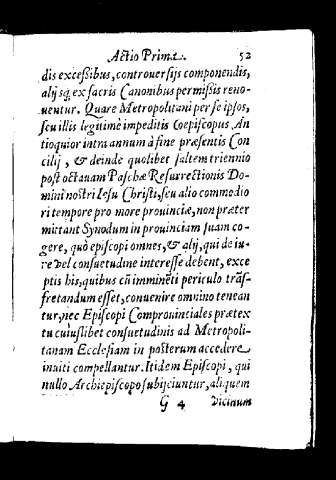 Actio Prima. 52
dis excessibus, controuersijs componendis,
alijsq; ex sacris Canonibus permissis reno-
uentur. Quare Metropolitani per se ipsos,
seu illis legitimè impeditis Coepiscopus An
tioquior intra annum à fine præsentis Con
cilij, & deinde quolibet saltem triennio
post octauam Paschæ Resurrectionis Do-
mini nostri Iesu Christi, seu alio commodio
ri tempore pro more prouinciæ, non præter
mittant Synodum in prouinciam suam co-
gere, quò episcopi omnes, & alij, qui de iu-
re vel consuetudine interesse debent, exce
ptis his, quibus cũ imminẽti periculo trãs-
fretandum esset, conuenire omnino tenean
tur, nec Episcopi Comprouinciales prætex
tu cuiuslibet consuetudinis ad Metropoli-
tanam Ecclesiam in posterum accedere
inuiti compellantur. Itidem Episcopi, qui
nullo Archiepiscopo subijciuntur, aliquem
G 4 vicinum